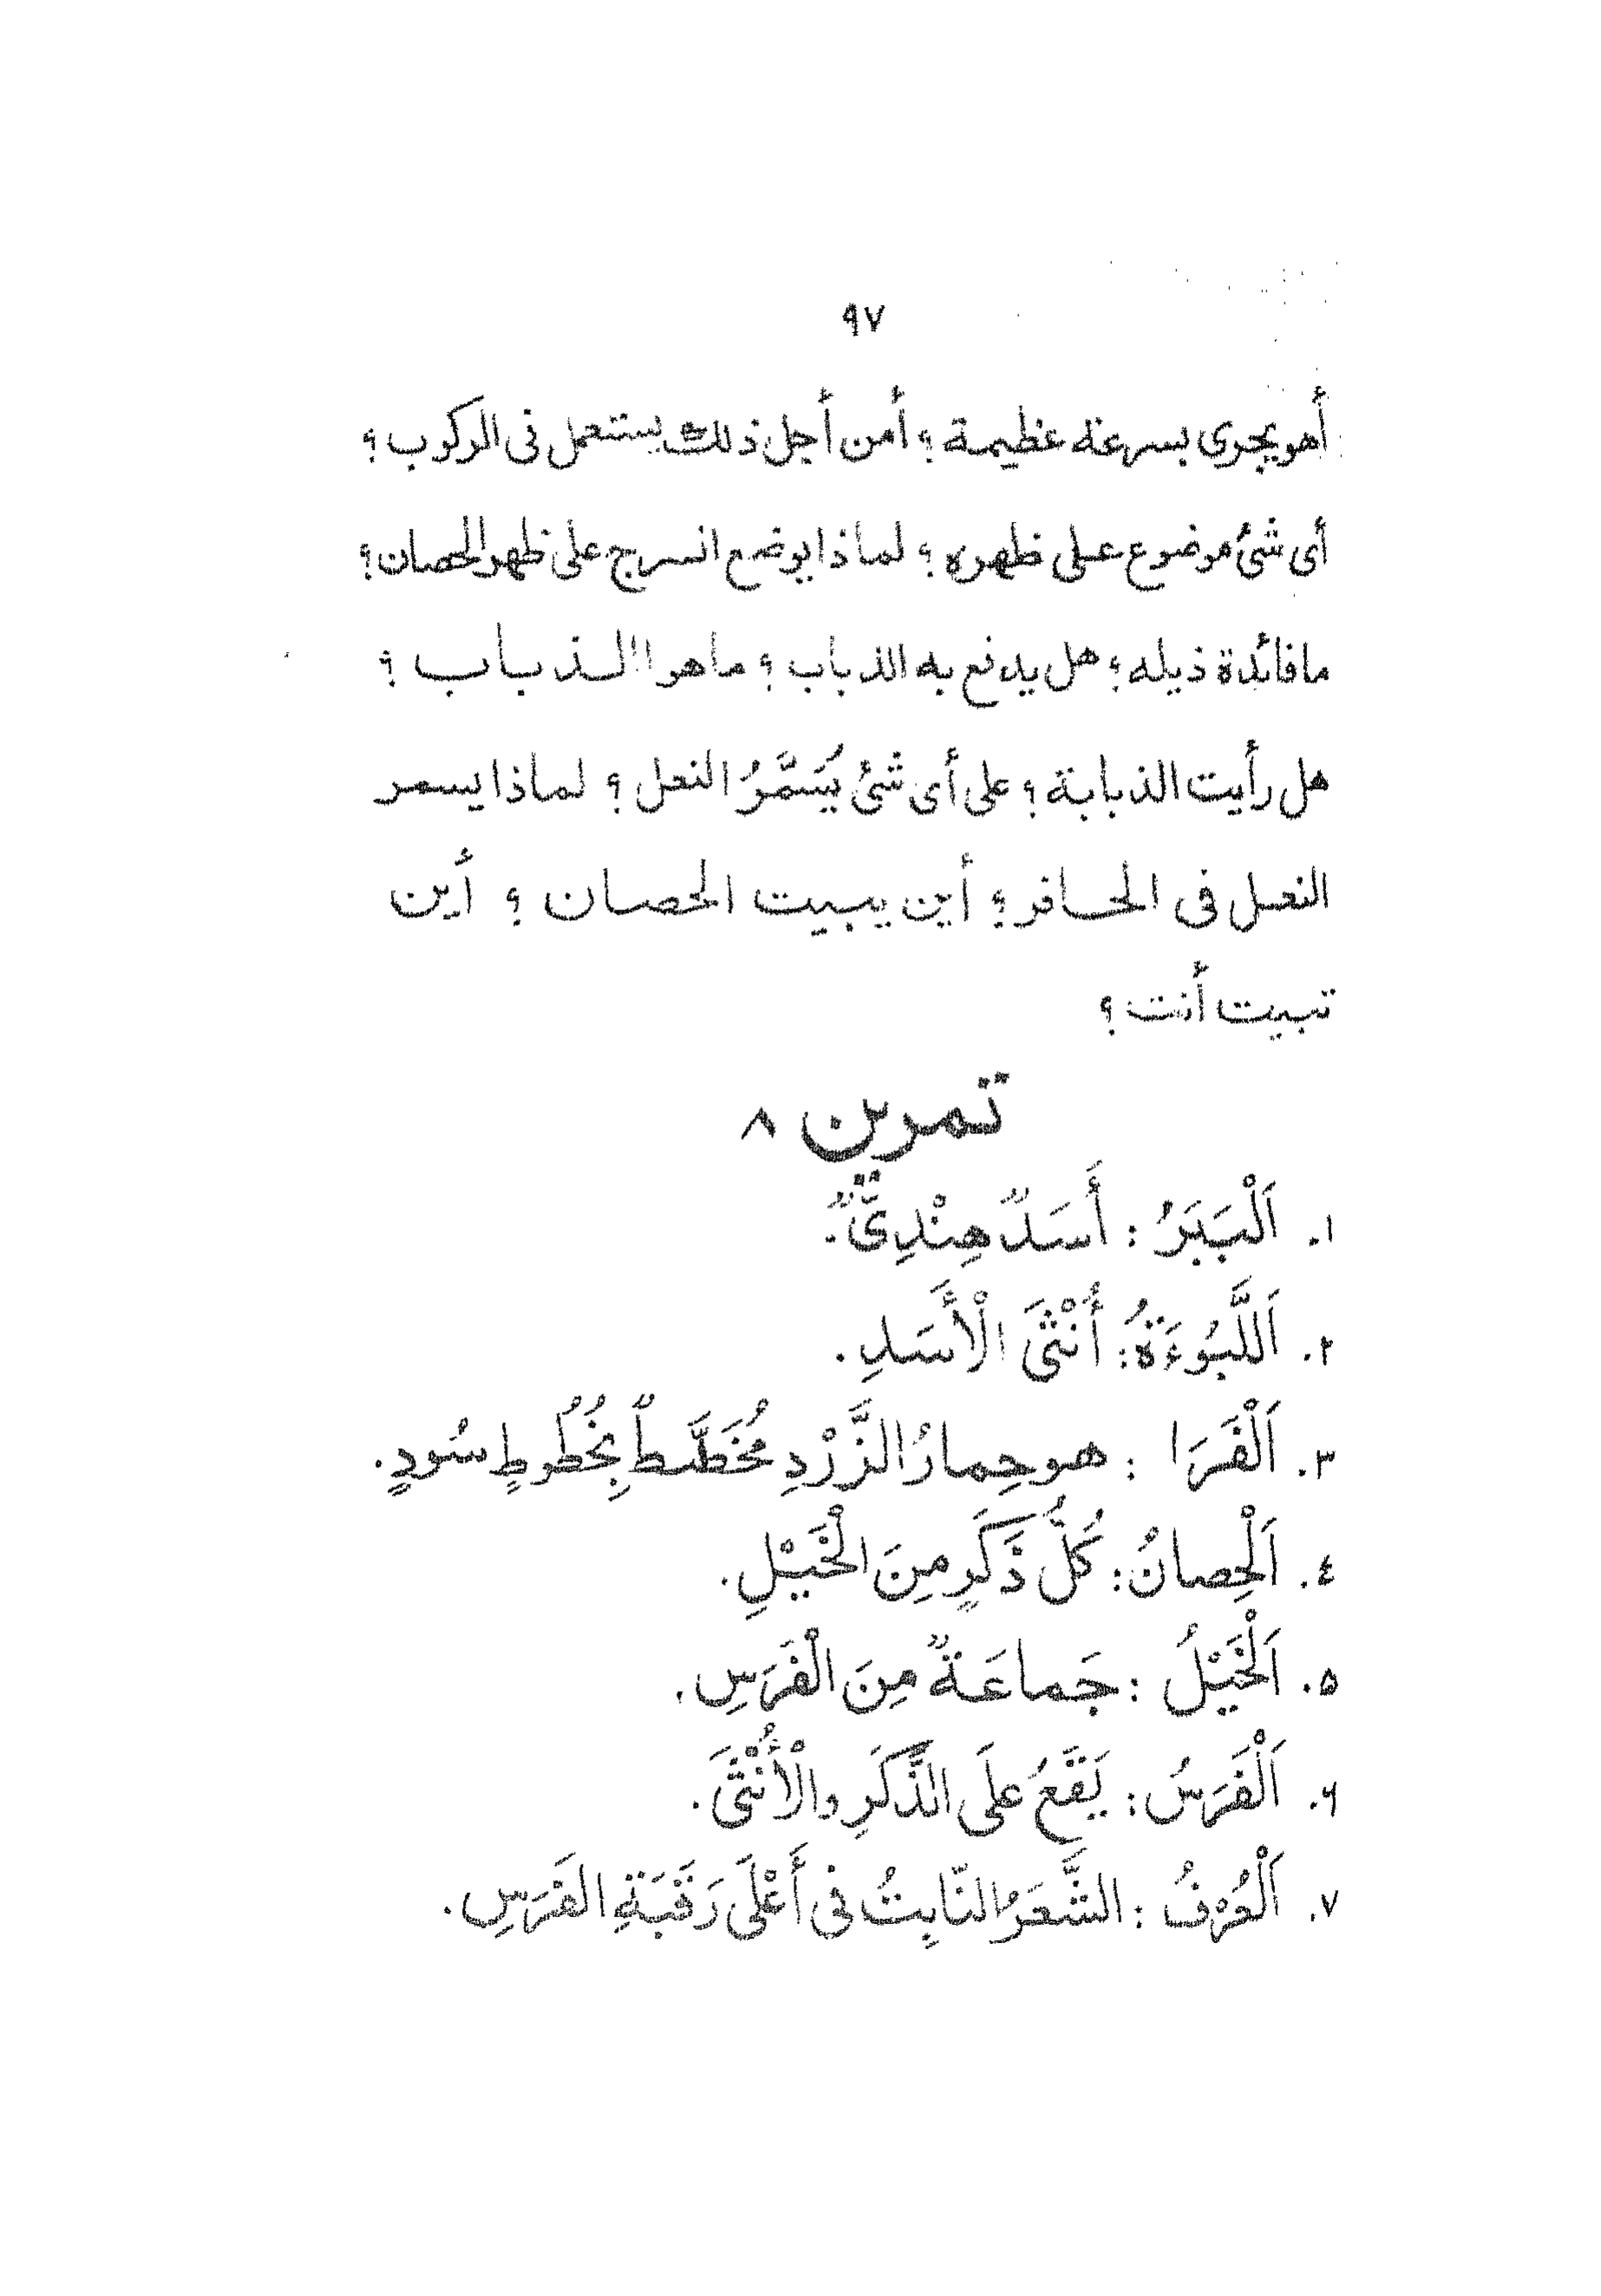 ٩٧
أهو يجرى بسرعة عظيمة ؟ أمن أجل ذلك يستعمل فى الركوب ؟
أى شئ موضوع على ظهره ؟ لماذا يوضع السرج على ظهر الحصان؟
ما فائدة ذيله ؟ هل يدفع به الذباب ؟ ما هو الذباب ؟
هل رأيت الذبابة ؟ على أى شئ يُسَمَّرُ النعل ؟ لماذا يسمر
النعل فى الحافر ؟ أين يبيت الحصان ؟ أين
تبيت أنت ؟
تمرين ٨
١. اَلْبَبَرُ : أَسَدٌ هِنْدِىٌّ.
٢. اَللَّبُوءَةُ : أُنْثَى الْأَسَدِ.
٣. اَلْفَرَا : هو حِمارُ الزَّرْدِ مُخَطَّطٌ بِخُطُوطٍ سُودٍ.
٤. اَلْحِصانُ : كُلُّ ذَكَرٍ مِنَ الْخَيْلِ.
٥. اَلْخَيْلُ : جَماعَةٌ مِنَ الْفَرَسِ.
٦. اَلْفَرَسُ : يَقَعُ علَى الذَّكَرِ والْأُنْثَى.
٧. اَلْعُرْفُ : الشَّعَرُ النّابِتُ فى أَعْلَى رَقَبَةِ الفَرَسِ.